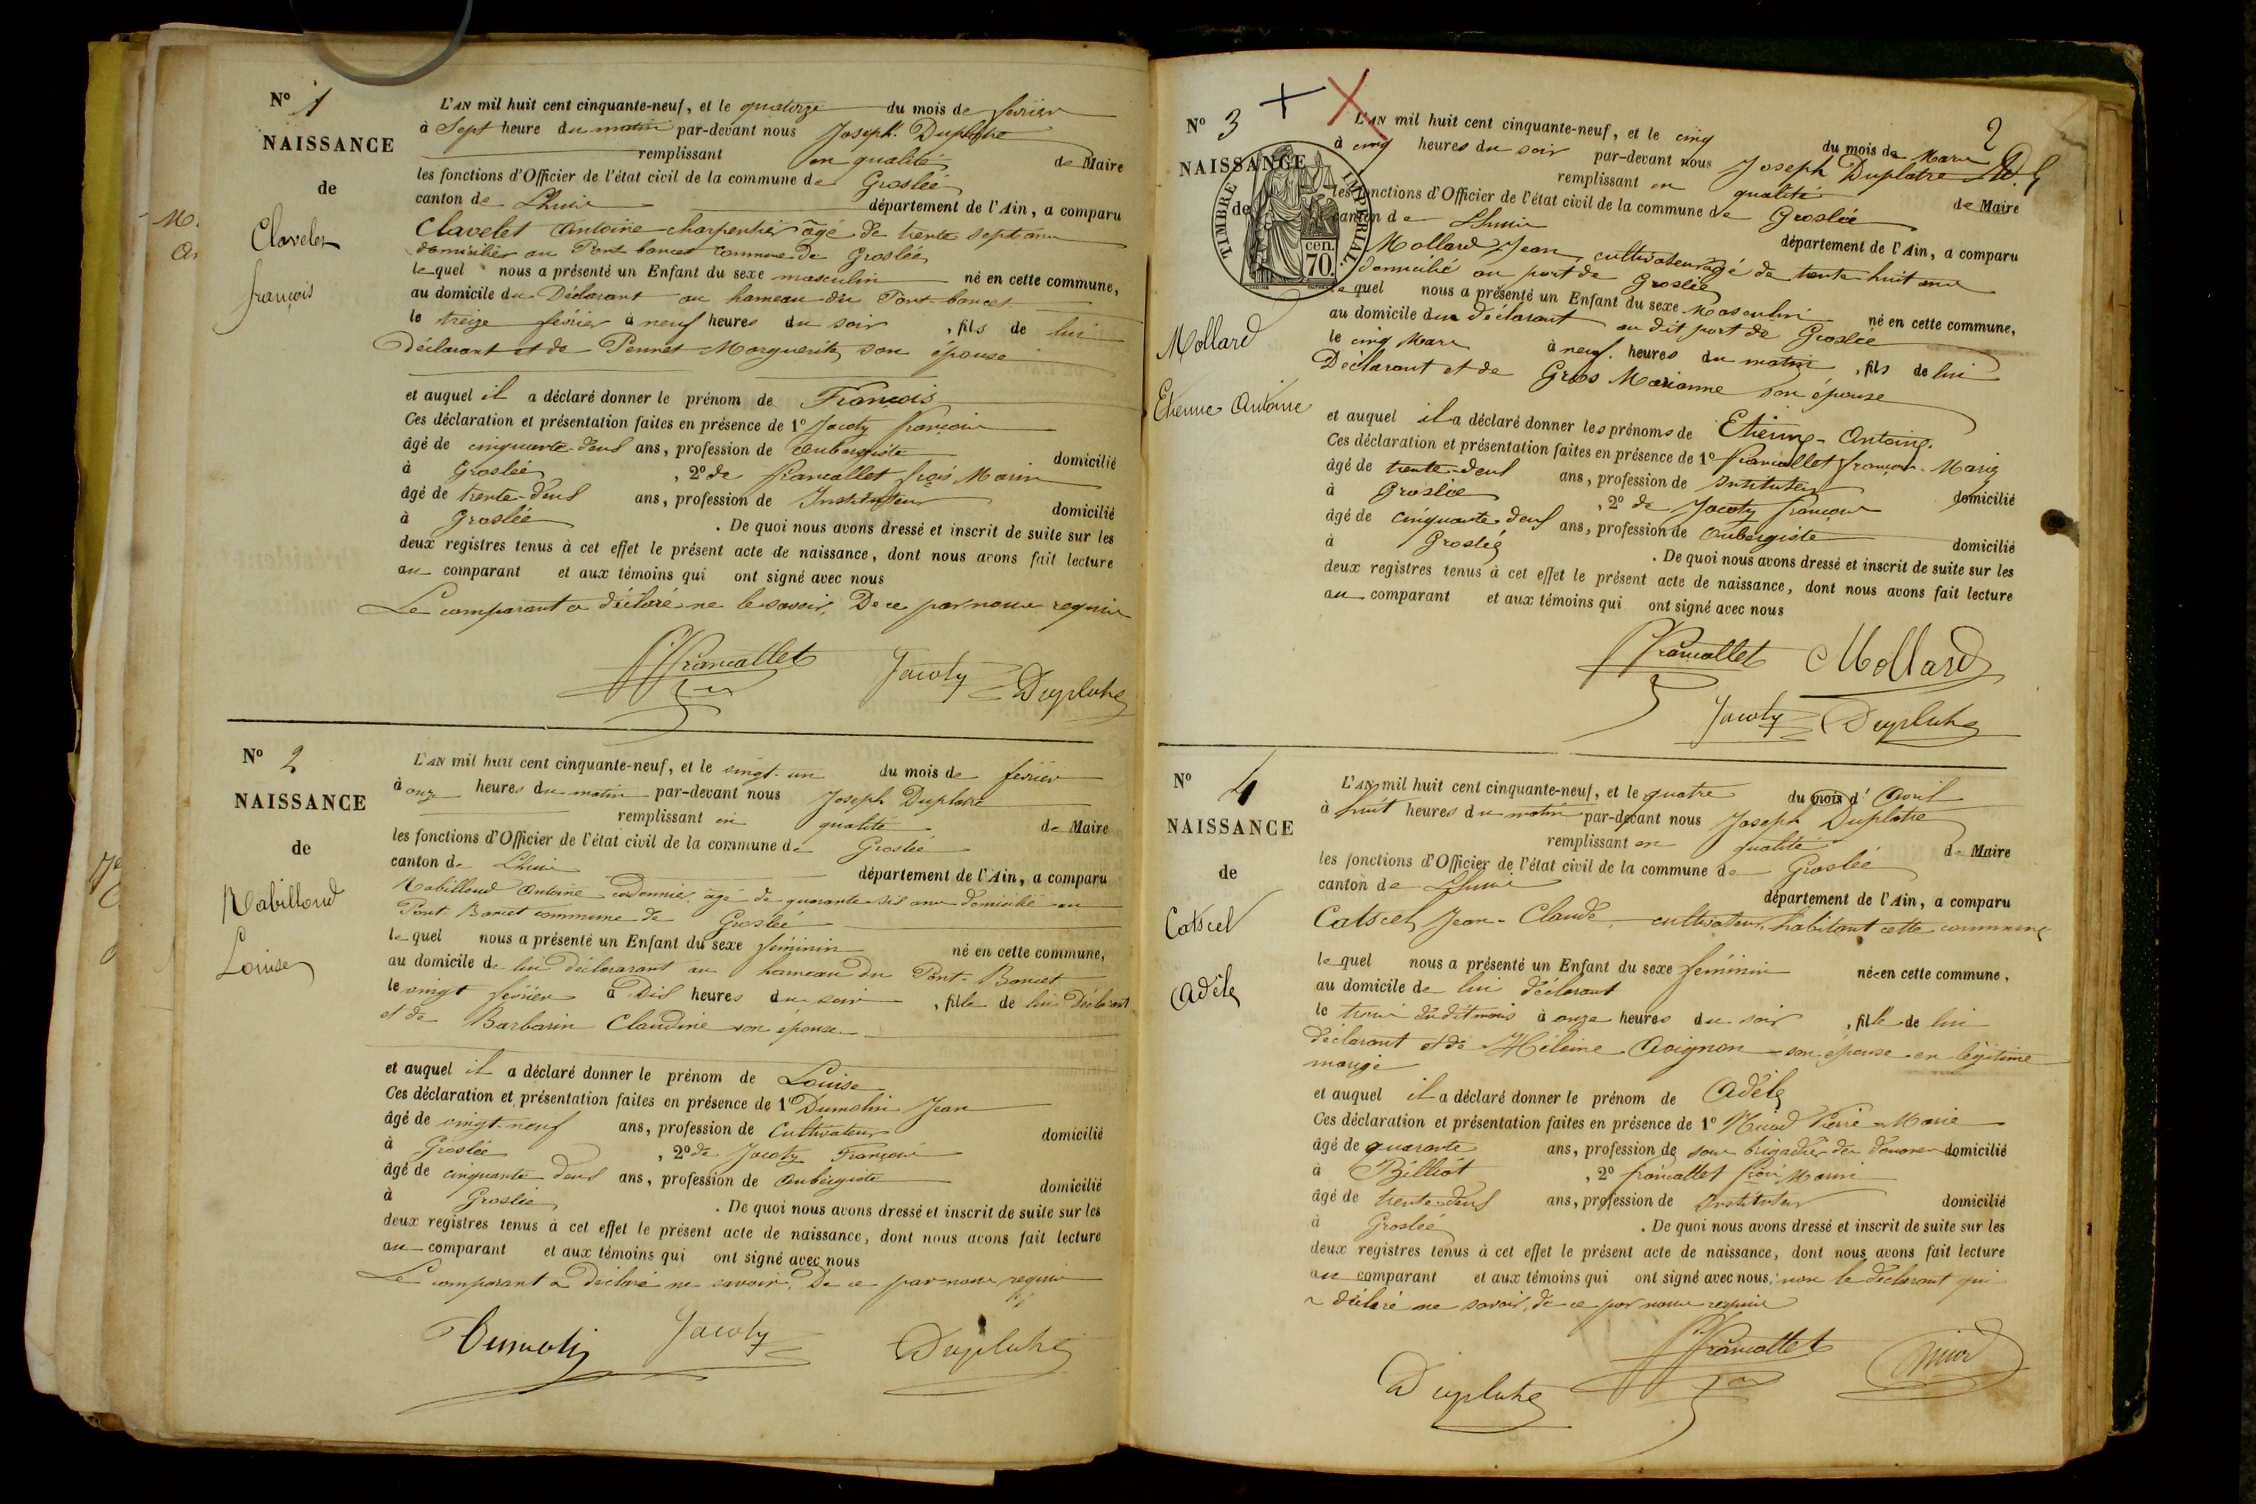 N° 1
NAISSANCE
de
Clavelet
françois
L'AN mil huit cent cinquante-neuf, et le quatorze du mois de février
à Sept heure du matin par-devant nous Joseph Duplatre
remplissant en qualité de Maire
les fonctions d'Officier de l'état civil de la commune de Groslée
canton de Lhuis département de l'Ain, a comparu
Clavelet Antoine charpentier âgé de trente sept ans
domicilier au Pont bancet commune de Groslée
lequel nous a présenté un Enfant du sexe masculin né en cette commune,
au domicile du Déclarant au hameau du Pont-bancet
le treize février à neuf heures du soir, fils de lui
Déclarant et de Pennet Marguerite son épouse
et auquel il a déclaré donner le prénom de François
Ces déclaration et présentation faites en présence de 1° Jacoty françois
âgé de cinquante-deux ans, profession de aubergiste domicilié
à Groslée, 2° de francallet frçois Marin
âgé de trente-deux ans, profession de Instituteur domicilié
à Groslée. De quoi nous avons dressé et inscrit de suite sur les
deux registres tenus à cet effet le présent acte de naissance, dont nous avons fait lecture
au comparant et aux témoins qui ont signé avec nous
Le comparant a déclaré ne le savoir, De ce par nous requis
Francallet Jacoty Duplatre
N° 2
NAISSANCE
de
Rabilloud
Louise
L'AN mil huit cent cinquante-neuf, et le vingt-un du mois de février
à onze heures du matin par-devant nous Joseph Duplatre
remplissant en qualité de Maire
les fonctions d'Officier de l'état civil de la commune de Groslée
canton de Lhuis département de l'Ain, a comparu
Rabilloud Antoine cordonnier, âgé de quarante-six ans domicilié au
Pont Bancet commune de Groslée
lequel nous a présenté un Enfant du sexe féminin né en cette commune,
au domicile de lui déclararant au hameau du Pont-Bancet
le vingt février à Dix heures du soir, fille de lui Déclarant
et de Barbarin Claudine son épouse
et auquel il a déclaré donner le prénom de Louise
Ces déclaration et présentation faites en présence de 1° Dumolin Jean
âgé de vingt-neuf ans, profession de Cultivateur domicilié
à Groslée, 2° de Jacoty François
âgé de cinquante deux ans, profession de aubergiste domicilié
à Groslée. De quoi nous avons dressé et inscrit de suite sur les
deux registres tenus à cet effet le présent acte de naissance, dont nous avons fait lecture
au comparant et aux témoins qui ont signé avec nous
Le comparant a déclaré ne savoir, De ce par nous requis
Dumolin Jacoty Duplatre
2
N° 3
NAISSANCE
de
TIMBRE IMPÉRIAL
70 cen.
Mollard
Etienne Antoine
L'AN mil huit cent cinquante-neuf, et le cinq du mois de Mars
à cinq heures du soir par-devant nous Joseph Duplatre
remplissant en qualité de Maire
les fonctions d'Officier de l'état civil de la commune de Groslée
canton de Lhuis département de l'Ain, a comparu
Mollard Jean, cultivateur âgé de trente-huit ans
domicilié au port de Groslée
lequel nous a présenté un Enfant du sexe Masculin né en cette commune,
au domicile du déclarant au dit port de Groslée
le cinq Mars à neuf heures du matin, fils de lui
Déclarant et de Gros Marianne son épouse
et auquel il a déclaré donner les prénoms de Etienne-Antoine.
Ces déclaration et présentation faites en présence de 1° francallet françois-Marin
âgé de trente-deux ans, profession de Instituteur domicilié
à Groslée, 2° de Jacoty françois
âgé de cinquante-deux ans, profession de aubergiste domicilié
à Groslée. De quoi nous avons dressé et inscrit de suite sur les
deux registres tenus à cet effet le présent acte de naissance, dont nous avons fait lecture
au comparant et aux témoins qui ont signé avec nous
Francallet Mollard
Jacoty Duplatre
N° 4
NAISSANCE
de
Catscel
Adèle
L'AN mil huit cent cinquante-neuf, et le quatre du mois d'Avril
à huit heures du matin par-devant nous Joseph Duplatre
remplissant en qualité de Maire
les fonctions d'Officier de l'état civil de la commune de Groslée
canton de Lhuis département de l'Ain, a comparu
Catscel, Jean-Claude, cultivateur, habitant cette commune
lequel nous a présenté un Enfant du sexe féminin née en cette commune,
au domicile de lui déclarant
le trois du dit mois à onze heures du soir, fille de lui
déclarant et de Hélène Avignon son épouse en légitime
mariage
et auquel il a déclaré donner le prénom de Adèle
Ces déclaration et présentation faites en présence de 1° Pierre-Marie
âgé de quarante ans, profession de sous brigadier des douanes domicilié
à Billiat, 2° francallet frçois Marin
âgé de trente-deux ans, profession de Instituteur domicilié
à Groslée. De quoi nous avons dressé et inscrit de suite sur les
deux registres tenus à cet effet le présent acte de naissance, dont nous avons fait lecture
au comparant et aux témoins qui ont signé avec nous, non le déclarant qui
a déclaré ne savoir, de ce par nous requis
Duplatre Francallet